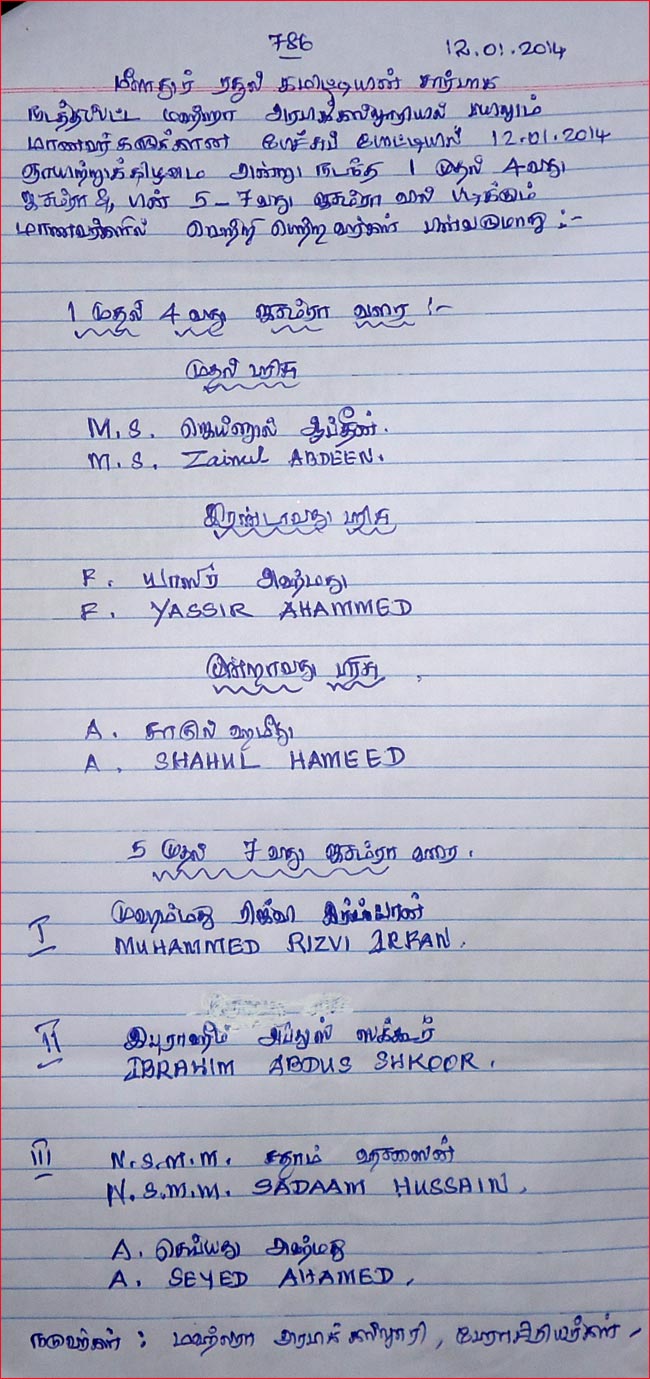 786
12.01.2014
மீலாதுர் ரசூல் கமிட்டியின் சார்பாக
நடத்தப்பட்ட மஹ்ழரா அரபிக்கல்லூரியில் பயிலும்
மாணவர்களுக்கான பேச்சுப் போட்டியில் 12.01.2014
ஞாயிற்றுக்கிழமை அன்று நடந்த 1 முதல் 4வது
ஜும்ரா &, பின் 5-7வது ஜும்ரா வரை படிக்கும்
மாணவர்களில் வெற்றி பெற்றவர்கள் பின்வருமாறு :-
1 முதல் 4 வது ஜும்ரா வரை :-
முதல் பரிசு
M.S. ஜெய்னுல் ஆப்தீன்.
M.S. Zainul ABDEEN.
இரண்டாவது பரிசு
F. யாஸிர் அஹ்மது
F. YASSIR AHAMMED
மூன்றாவது பரிசு
A. சாகுல் ஹமீது
A. SHAHUL HAMEED
5 முதல் 7 வது ஜும்ரா வரை.
I முஹம்மது ரிஜ்வி இர்ஃபான்
MUHAMMED RIZVI IRFAN.
II இபுராஹீம் அப்துஸ் ஸக்கூர்
IBRAHIM ABDUS SHKOOR.
III N.S.M.M. சதாம் ஹுஸைன்
N.S.M.M. SADAAM HUSSAIN.
A. செய்யது அஹ்மது
A. SEYED AHAMED.
நடுவர்கள் : மஹ்ழரா அரபிக் கல்லூரி, பேராசிரியர்கள்.